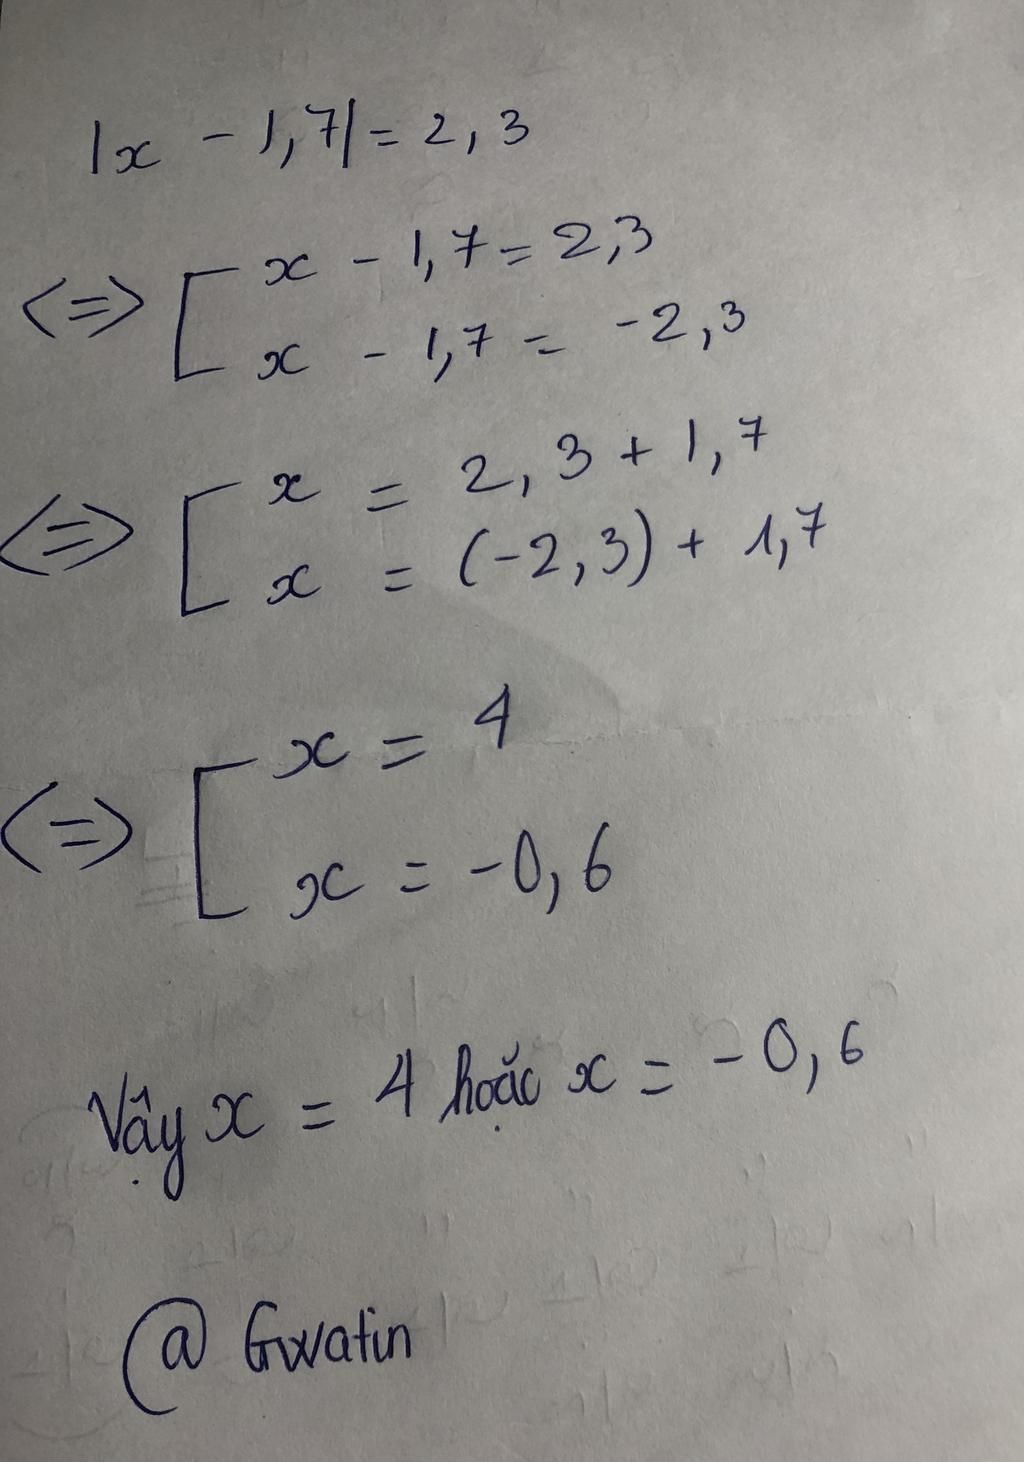 |x - 1,7| = 2,3
<=> [ x - 1,7 = 2,3
x - 1,7 = -2,3
<=> [ x = 2,3 + 1,7
x = (-2,3) + 1,7
<=> [ x = 4
x = -0,6
Vậy x = 4 hoặc x = -0,6
@ Gwatin